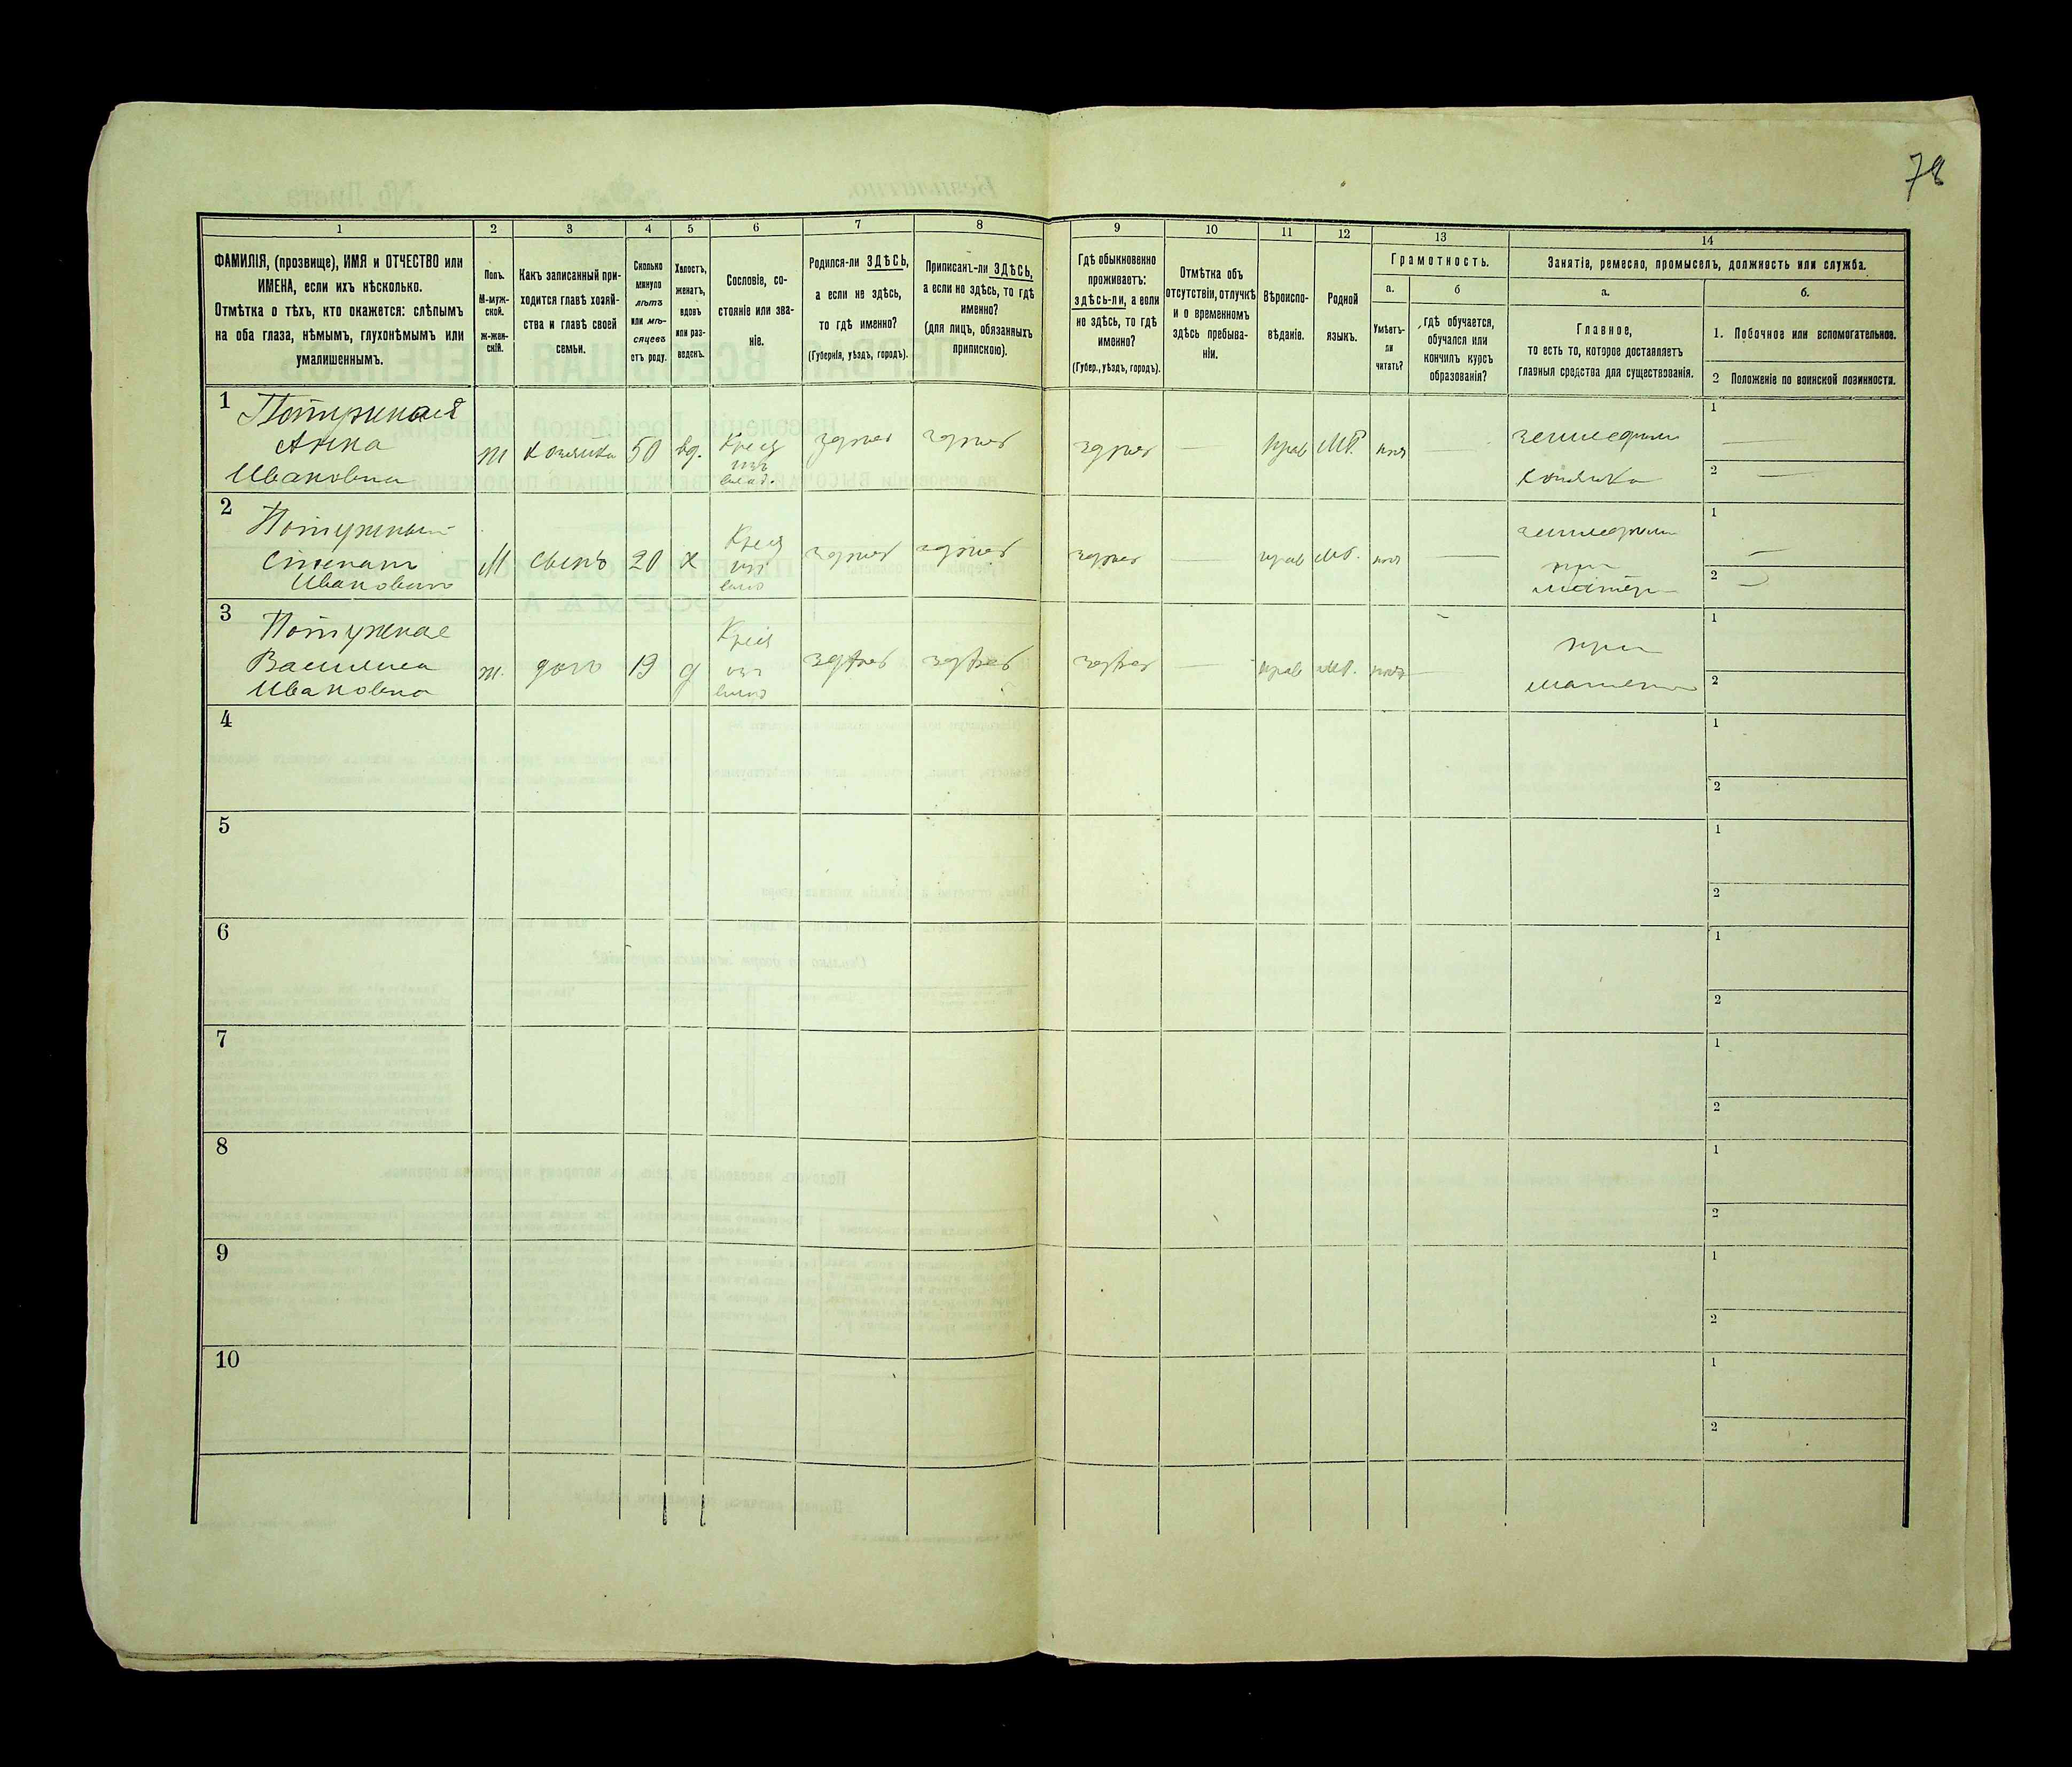 78
1 2 3 4 5 6 7 8 9 10 11 12 13 14
ФАМИЛІЯ, (прозвище), ИМЯ и ОТЧЕСТВО или
ИМЕНА, если ихъ нѣсколько.
Отмѣтка о тѣхъ, кто окажется: слѣпымъ
на оба глаза, нѣмымъ, глухонѣмымъ или
умалишеннымъ.
Полъ.
М-муж-
ской.
ж-жен-
скій.
Какъ записанный при-
ходится главѣ хозяй-
ства и главѣ своей
семьи.
Сколько
минуло
лѣтъ
или мѣ-
сяцевъ
отъ роду.
Холостъ,
женатъ,
вдовъ
или раз-
веденъ.
Сословіе, со-
стояніе или зва-
ніе.
Родился-ли ЗДѢСЬ,
а если не здѣсь,
то гдѣ именно?
(Губернія, уѣздъ, городъ).
Приписанъ-ли ЗДѢСЬ,
а если не здѣсь, то гдѣ
именно?
(для лицъ, обязанныхъ
припискою).
Гдѣ обыкновенно
проживаетъ:
здѣсь-ли, а если
не здѣсь, то гдѣ
именно?
(Губер., уѣздъ, городъ).
Отмѣтка объ
отсутствіи, отлучкѣ
и о временномъ
здѣсь пребыва-
ніи.
Вѣроиспо-
вѣданіе.
Родной
языкъ.
Грамотность.
а. б
Умѣетъ-
ли
читать?
Гдѣ обучается,
обучался или
кончилъ курсъ
образованія?
Занятія, ремесло, промыселъ, должность или служба.
а. б.
Главное,
то есть то, которое доставляетъ
главныя средства для существованія.
1. Побочное или вспомогательное.
2 Положеніе по воинской повинности.
1 Потужная
Анна
Ивановна
ж хозяйка 50 вд. Крест
изъ
влад.
здѣсь здѣсь здѣсь — прав МР. нѣт —
хозяйка
1 —
2 —
2 Потужный
Степанъ
Ивановичъ
М сынъ 20 х Крест
изъ
здѣсь здѣсь здѣсь — прав МР. нѣт —
при
матери
1 —
2
3 Потужная
Василиса
Ивановна
ж. дочь 19 д Крест
изъ
здѣсь здѣсь здѣсь — прав МР. нѣт —
при
матери
1
2
4 1
2
5 1
2
6 1
2
7 1
2
8 1
2
9 1
2
10 1
2